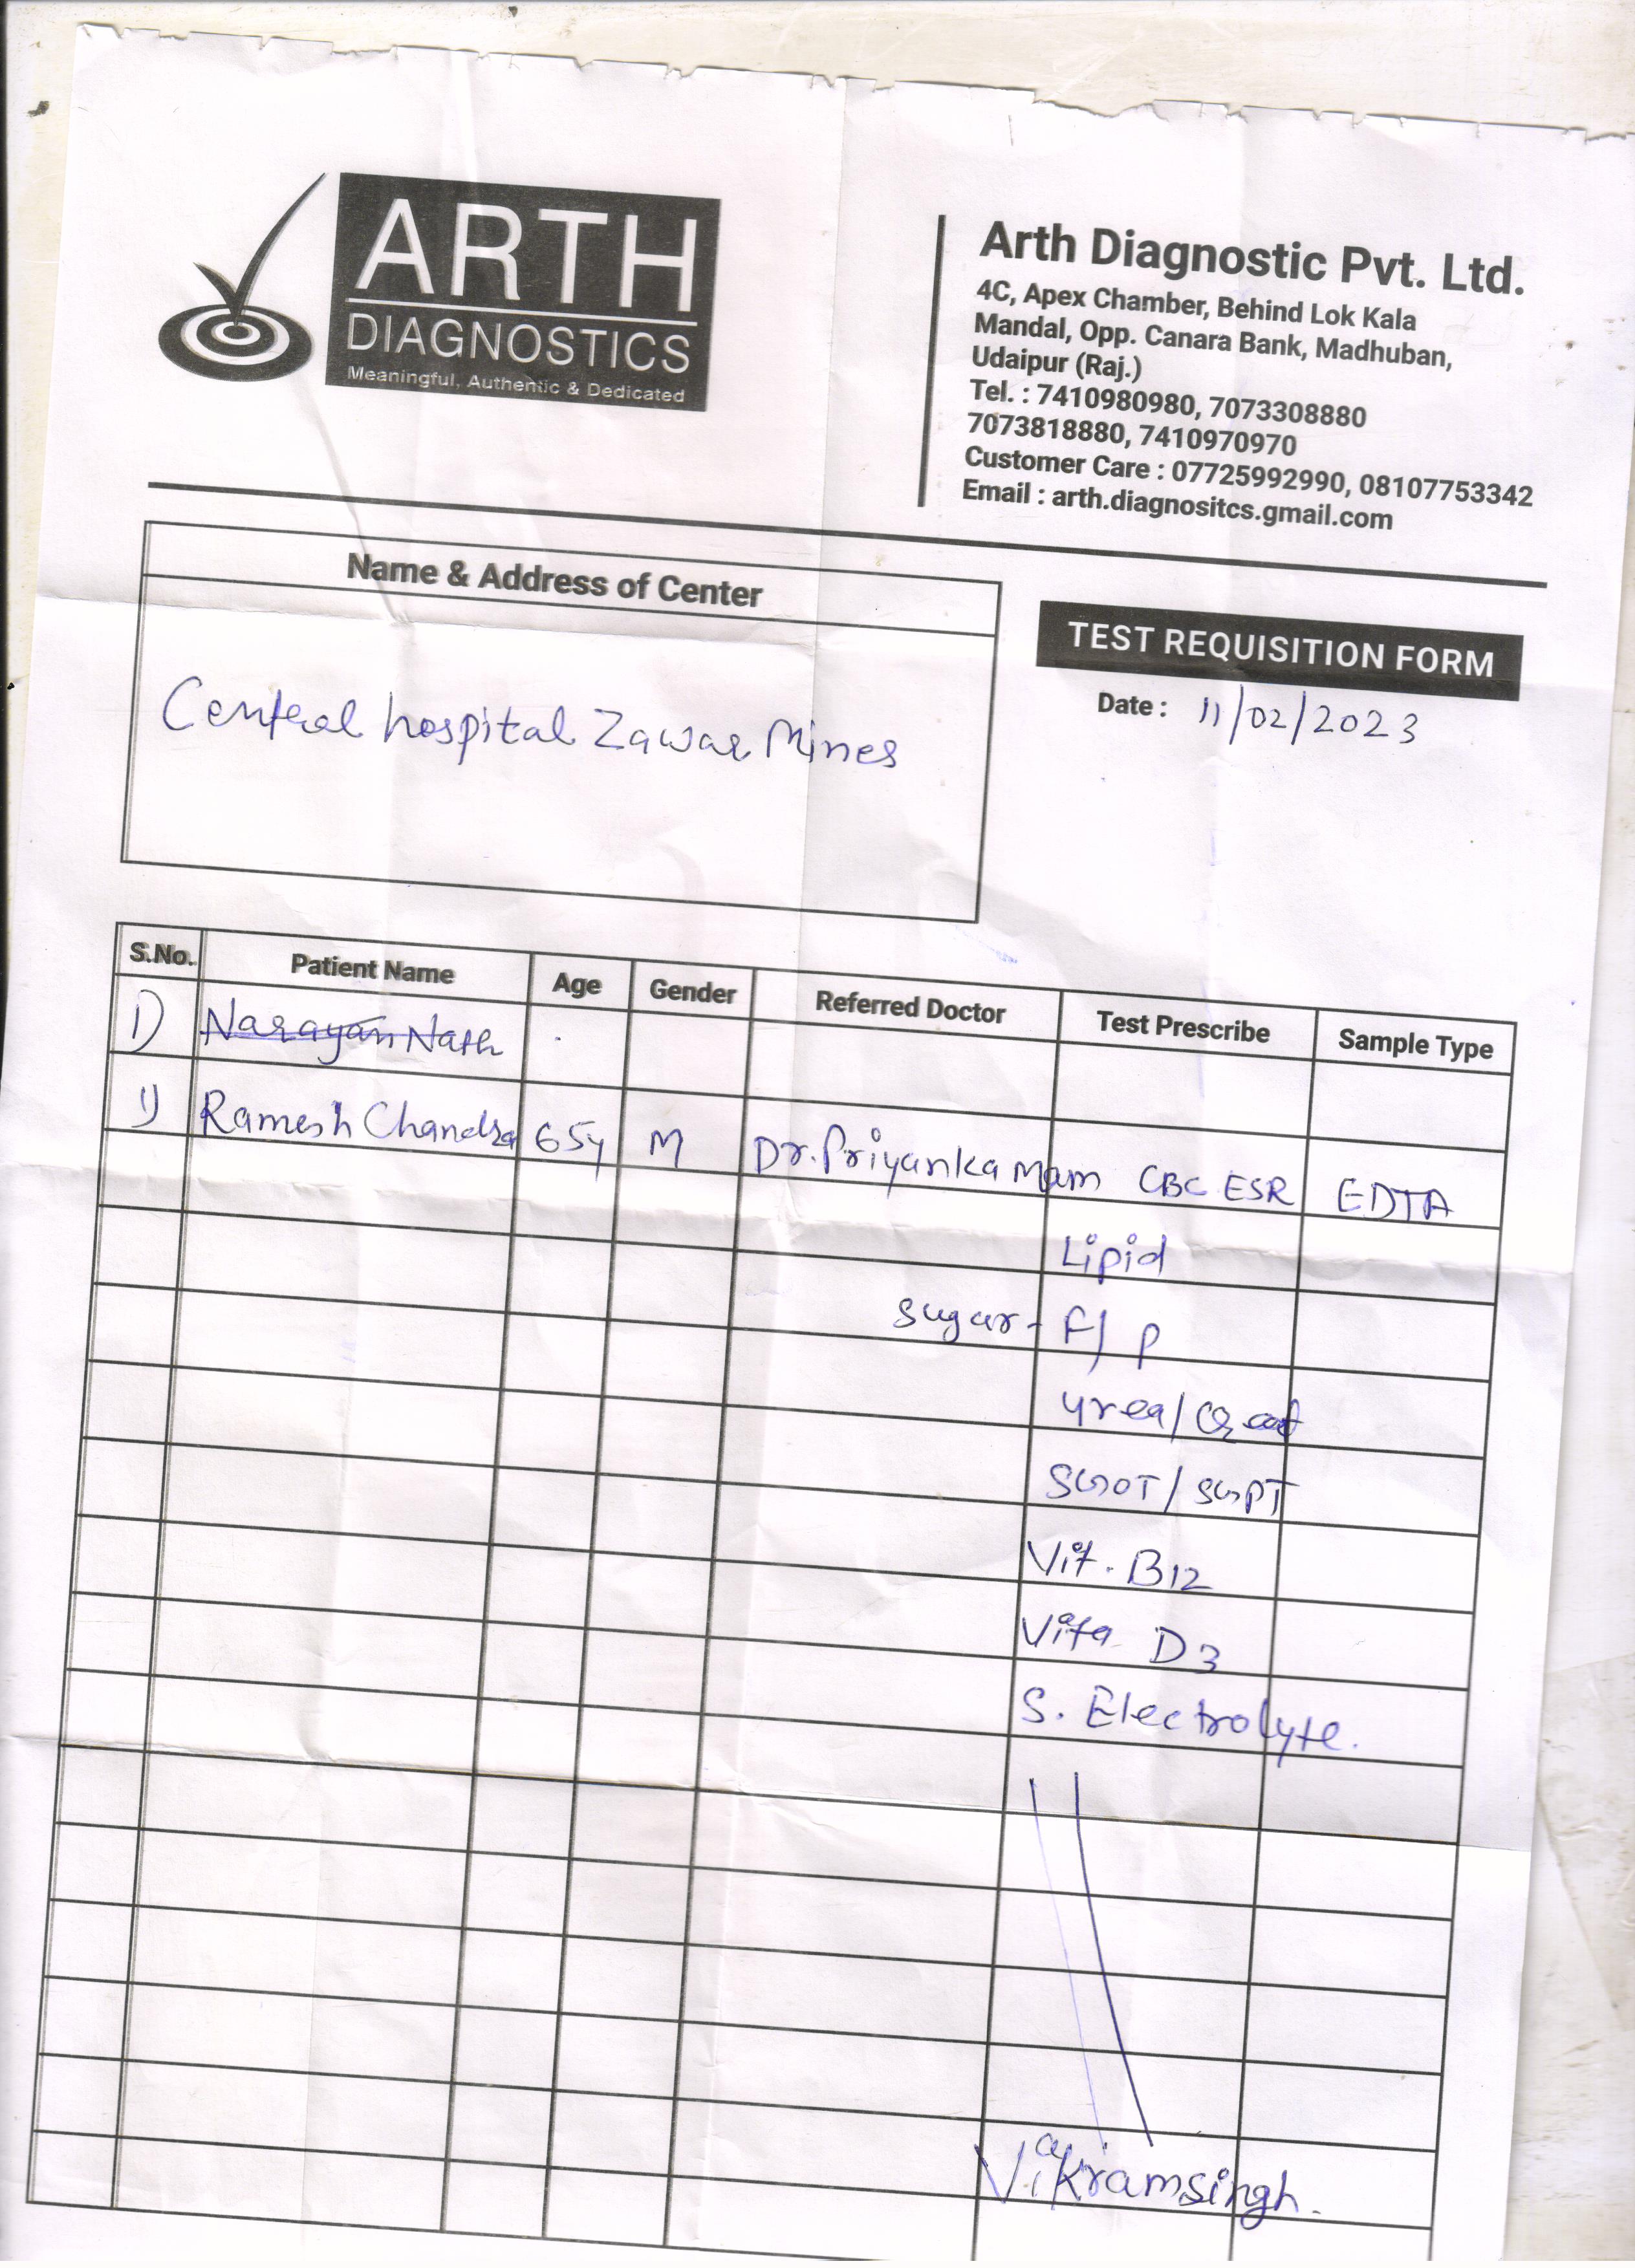 ARTH
DIAGNOSTICS
Meaningful, Authentic & Dedicated
Arth Diagnostic Pvt. Ltd.
4C, Apex Chamber, Behind Lok Kala
Mandal, Opp. Canara Bank, Madhuban,
Udaipur (Raj.)
Tel. : 7410980980, 7073308880
7073818880, 7410970970
Customer Care : 07725992990, 08107753342
Email : arth.diagnositcs.gmail.com
Name & Address of Center
Central hospital Zawar Mines
TEST REQUISITION FORM
Date : 11/02/2023
S.No. Patient Name Age Gender Referred Doctor Test Prescribe Sample Type
1) Narayan Nath
1) Ramesh Chandra 65y M Dr. Priyanka Mam CBC ESR EDTA
Lipid
Sugar - F/ P
Urea/ Creat
SGOT / SGPT
Vit. B12
Vita D3
S. Electrolyte.
Vikramsingh.